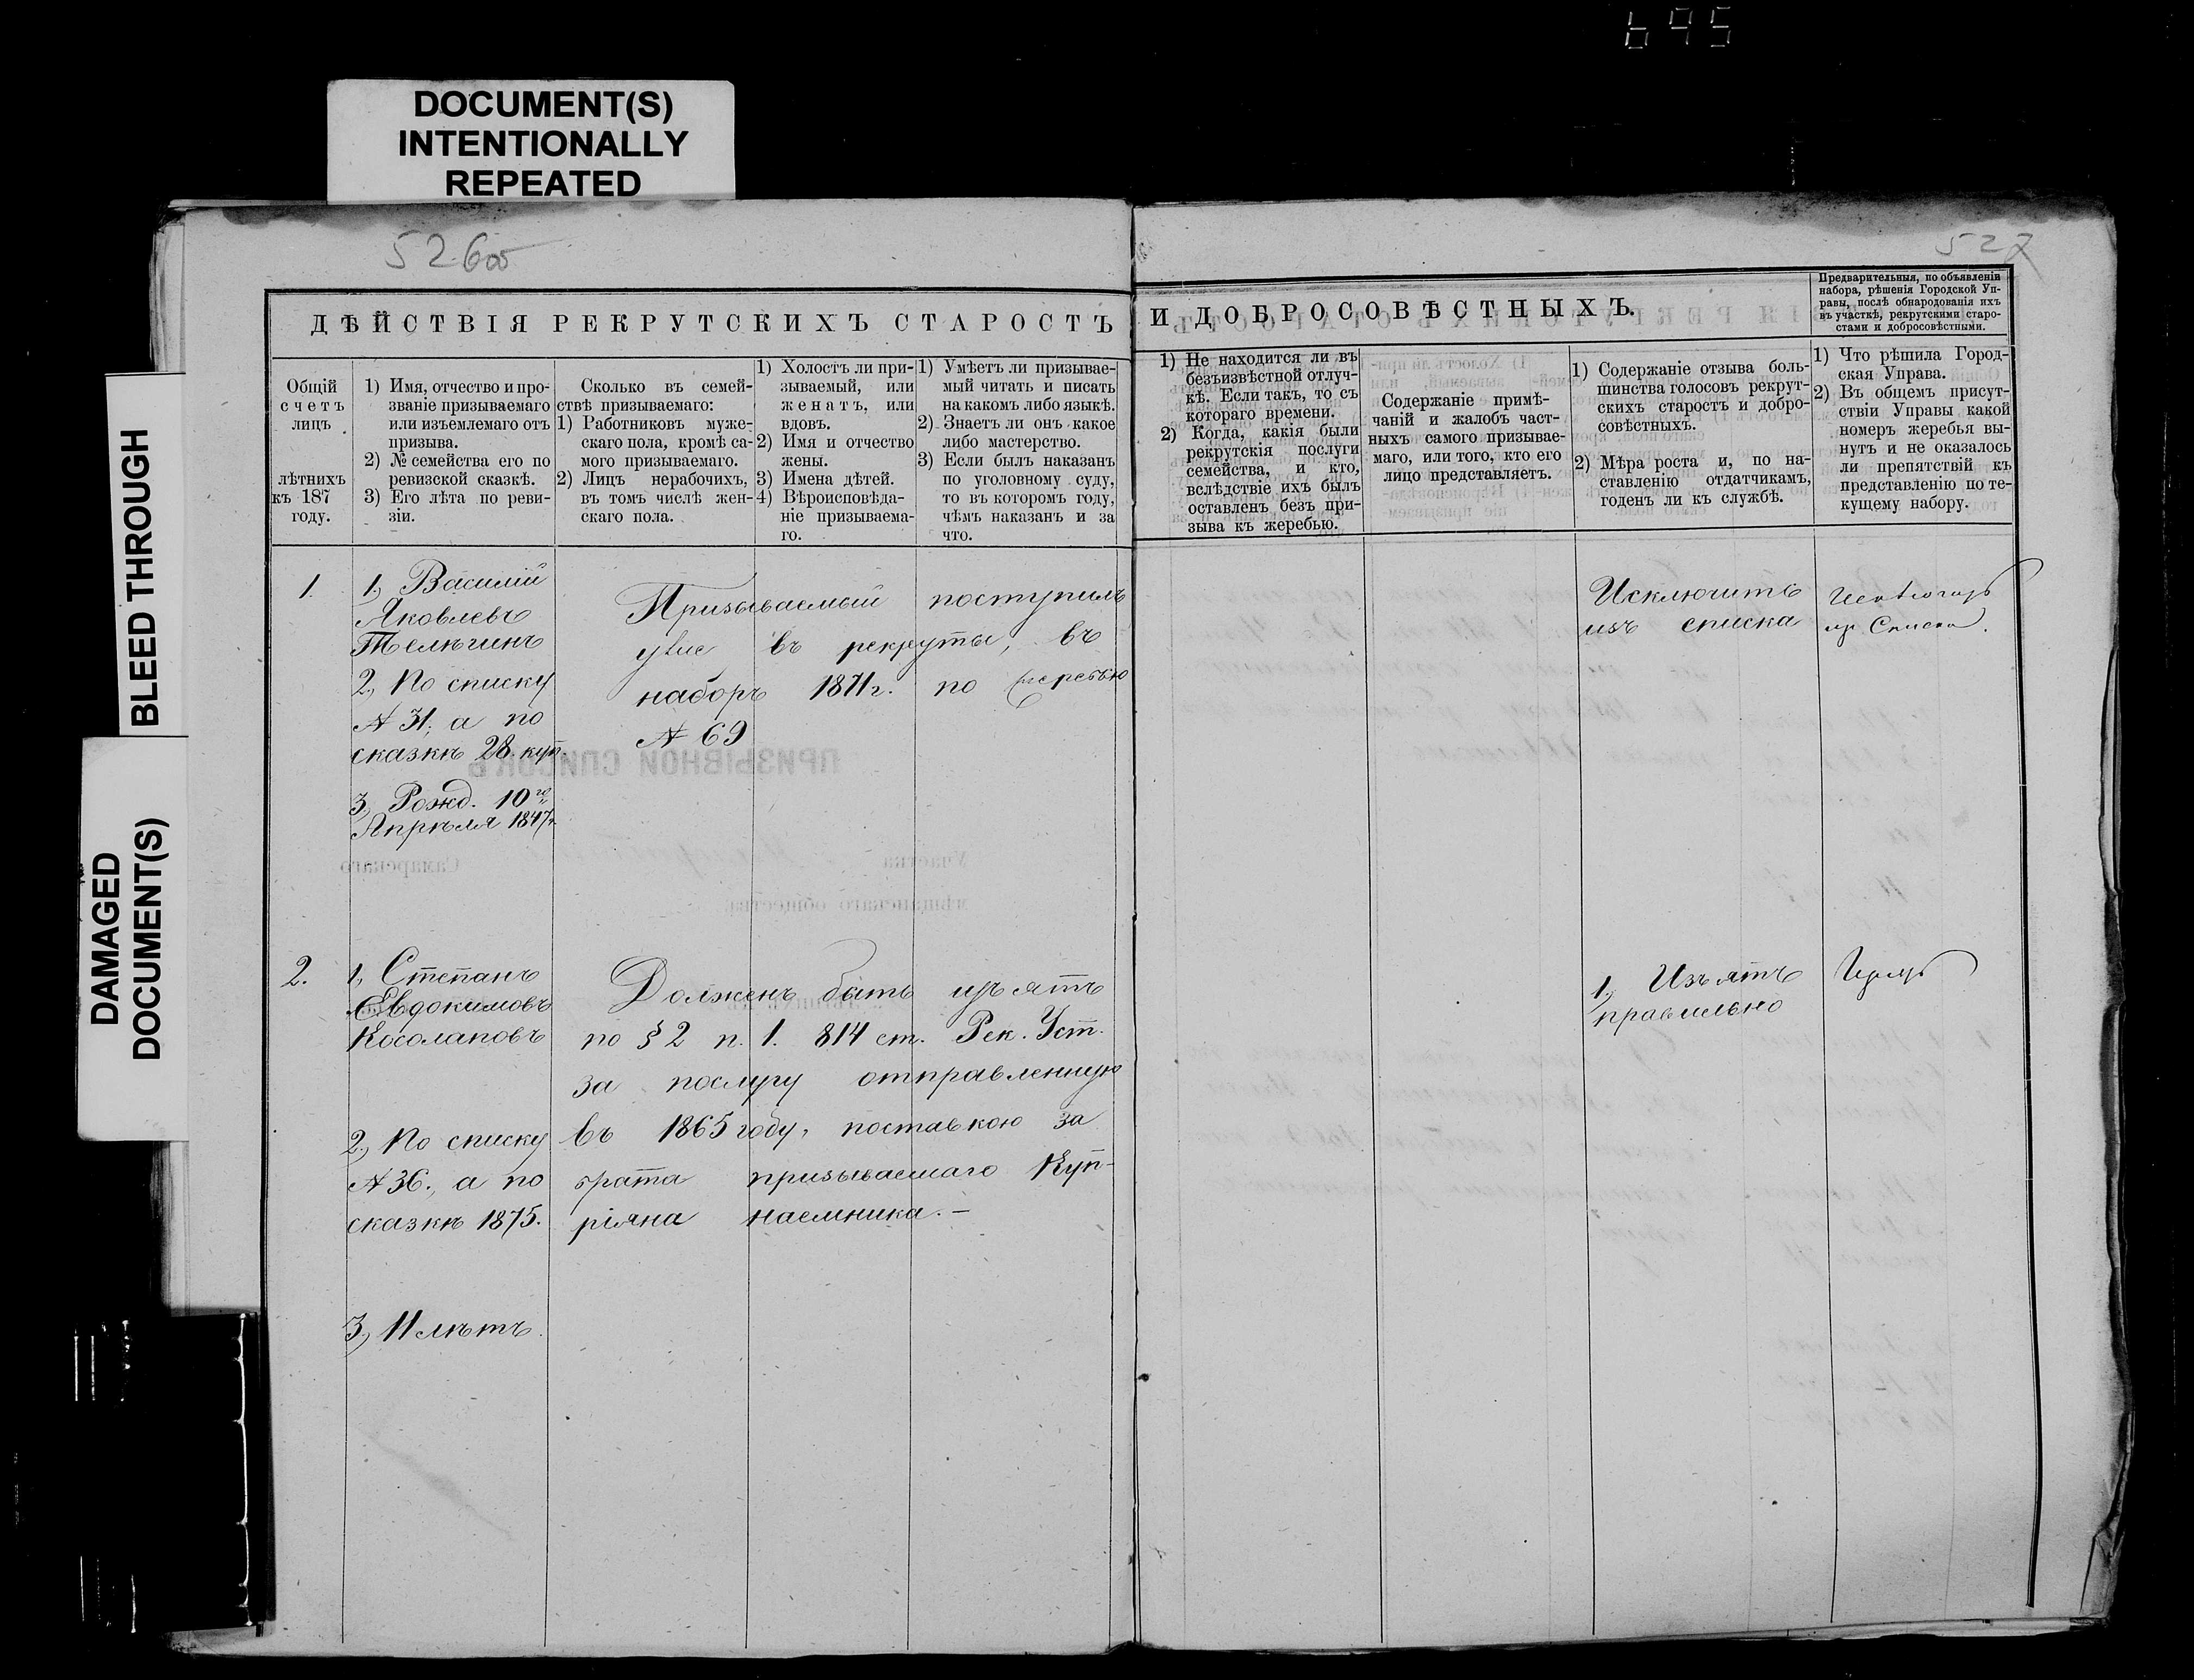 695
DOCUMENT(S)
INTENTIONALLY
REPEATED
BLEED THROUGH
DAMAGED
DOCUMENT(S)
526об
527
ДѢЙСТВІЯ РЕКРУТСКИХЪ СТАРОСТЪ
Общій
счетъ
лицъ
лѣтнихъ
къ 187
году.
1) Имя, отчество и про-
званіе призываемаго
или изъемлемаго отъ
призыва.
2) № семейства его по
ревизской сказкѣ.
3) Его лѣта по реви-
зіи.
Сколько въ семей-
ствѣ призываемаго:
1) Работниковъ муже-
скаго пола, кромѣ са-
мого призываемаго.
2) Лицъ нерабочихъ,
въ томъ числѣ жен-
скаго пола.
1) Холостъ ли при-
зываемый, или
женатъ, или
вдовъ.
2) Имя и отчество
жены.
3) Имена дѣтей.
4) Вѣроисповѣда-
ніе призываема-
го.
1) Умѣетъ ли призывае-
мый читать и писать
на какомъ либо языкѣ.
2) Знаетъ ли онъ какое
либо мастерство.
3) Если былъ наказанъ
по уголовному суду,
то въ которомъ году,
чѣмъ наказанъ и за
что.
И ДОБРОСОВѢСТНЫХЪ.
Предварительныя, по объявленіи
набора, рѣшенія Городской Уп-
равы, послѣ обнародованія ихъ
въ участкѣ, рекрутскими старо-
стами и добросовѣстными.
1) Не находится ли въ
безъизвѣстной отлуч-
кѣ. Если такъ, то съ
котораго времени.
2) Когда, какія были
рекрутскія послуги
семейства, и кто,
вслѣдствіе ихъ былъ
оставленъ безъ при-
зыва къ жеребью.
Содержаніе примѣ-
чаній и жалобъ част-
ныхъ самого призывае-
маго, или того, кто его
лицо представляетъ.
1) Содержаніе отзыва боль-
шинства голосовъ рекрут-
скихъ старостъ и добро-
совѣстныхъ.
2) Мѣра роста и, по на-
ставленію отдатчикамъ,
годенъ ли къ службѣ.
1) Что рѣшила Город-
ская Управа.
2) Въ общемъ присут-
ствіи Управы какой
номеръ жеребья вы-
нутъ и не оказалось
ли препятствій къ
представленію по те-
кущему набору.
1.
1, Василій
Яковлевъ
Телѣгинъ
2, По списку
№ 31; а по
сказкѣ 28. куп.
3, Рожд. 10го
Апрѣля 1847г.
Призываемый поступилъ
уже въ рекруты, въ
наборъ 1871г. по жеребью
№ 69
Исключить
изъ списка
изъ Списка.
2.
1, Степанъ
Евдокимовъ
Косолаповъ
2, По списку
№ 36., а по
сказкѣ 1875.
3, 11 лѣтъ.
Долженъ быть изъятъ
по § 2 п. 1. 814 ст. Рек. Уст.
за послугу отправленную
въ 1865 году, поставкою за
брата призываемаго Куп-
ріяна наемника. –
1, Изъятъ
правильно